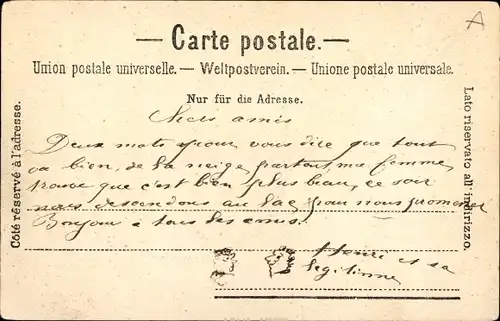 A
— Carte postale. —
Union postale universelle. — Weltpostverein. — Unione postale universale.
Nur für die Adresse.
Côté réservé à l'adresse.
Lato riservato all' indirizzo.
amis
Deux mots pour vous dire que tout
va bien, de la neige partout, ma femme
trouve que c'est bien plus beau, ce soir
nous descendons au lac pour nous promener
Bonjour à tous les amis!
Henri et sa
légitime